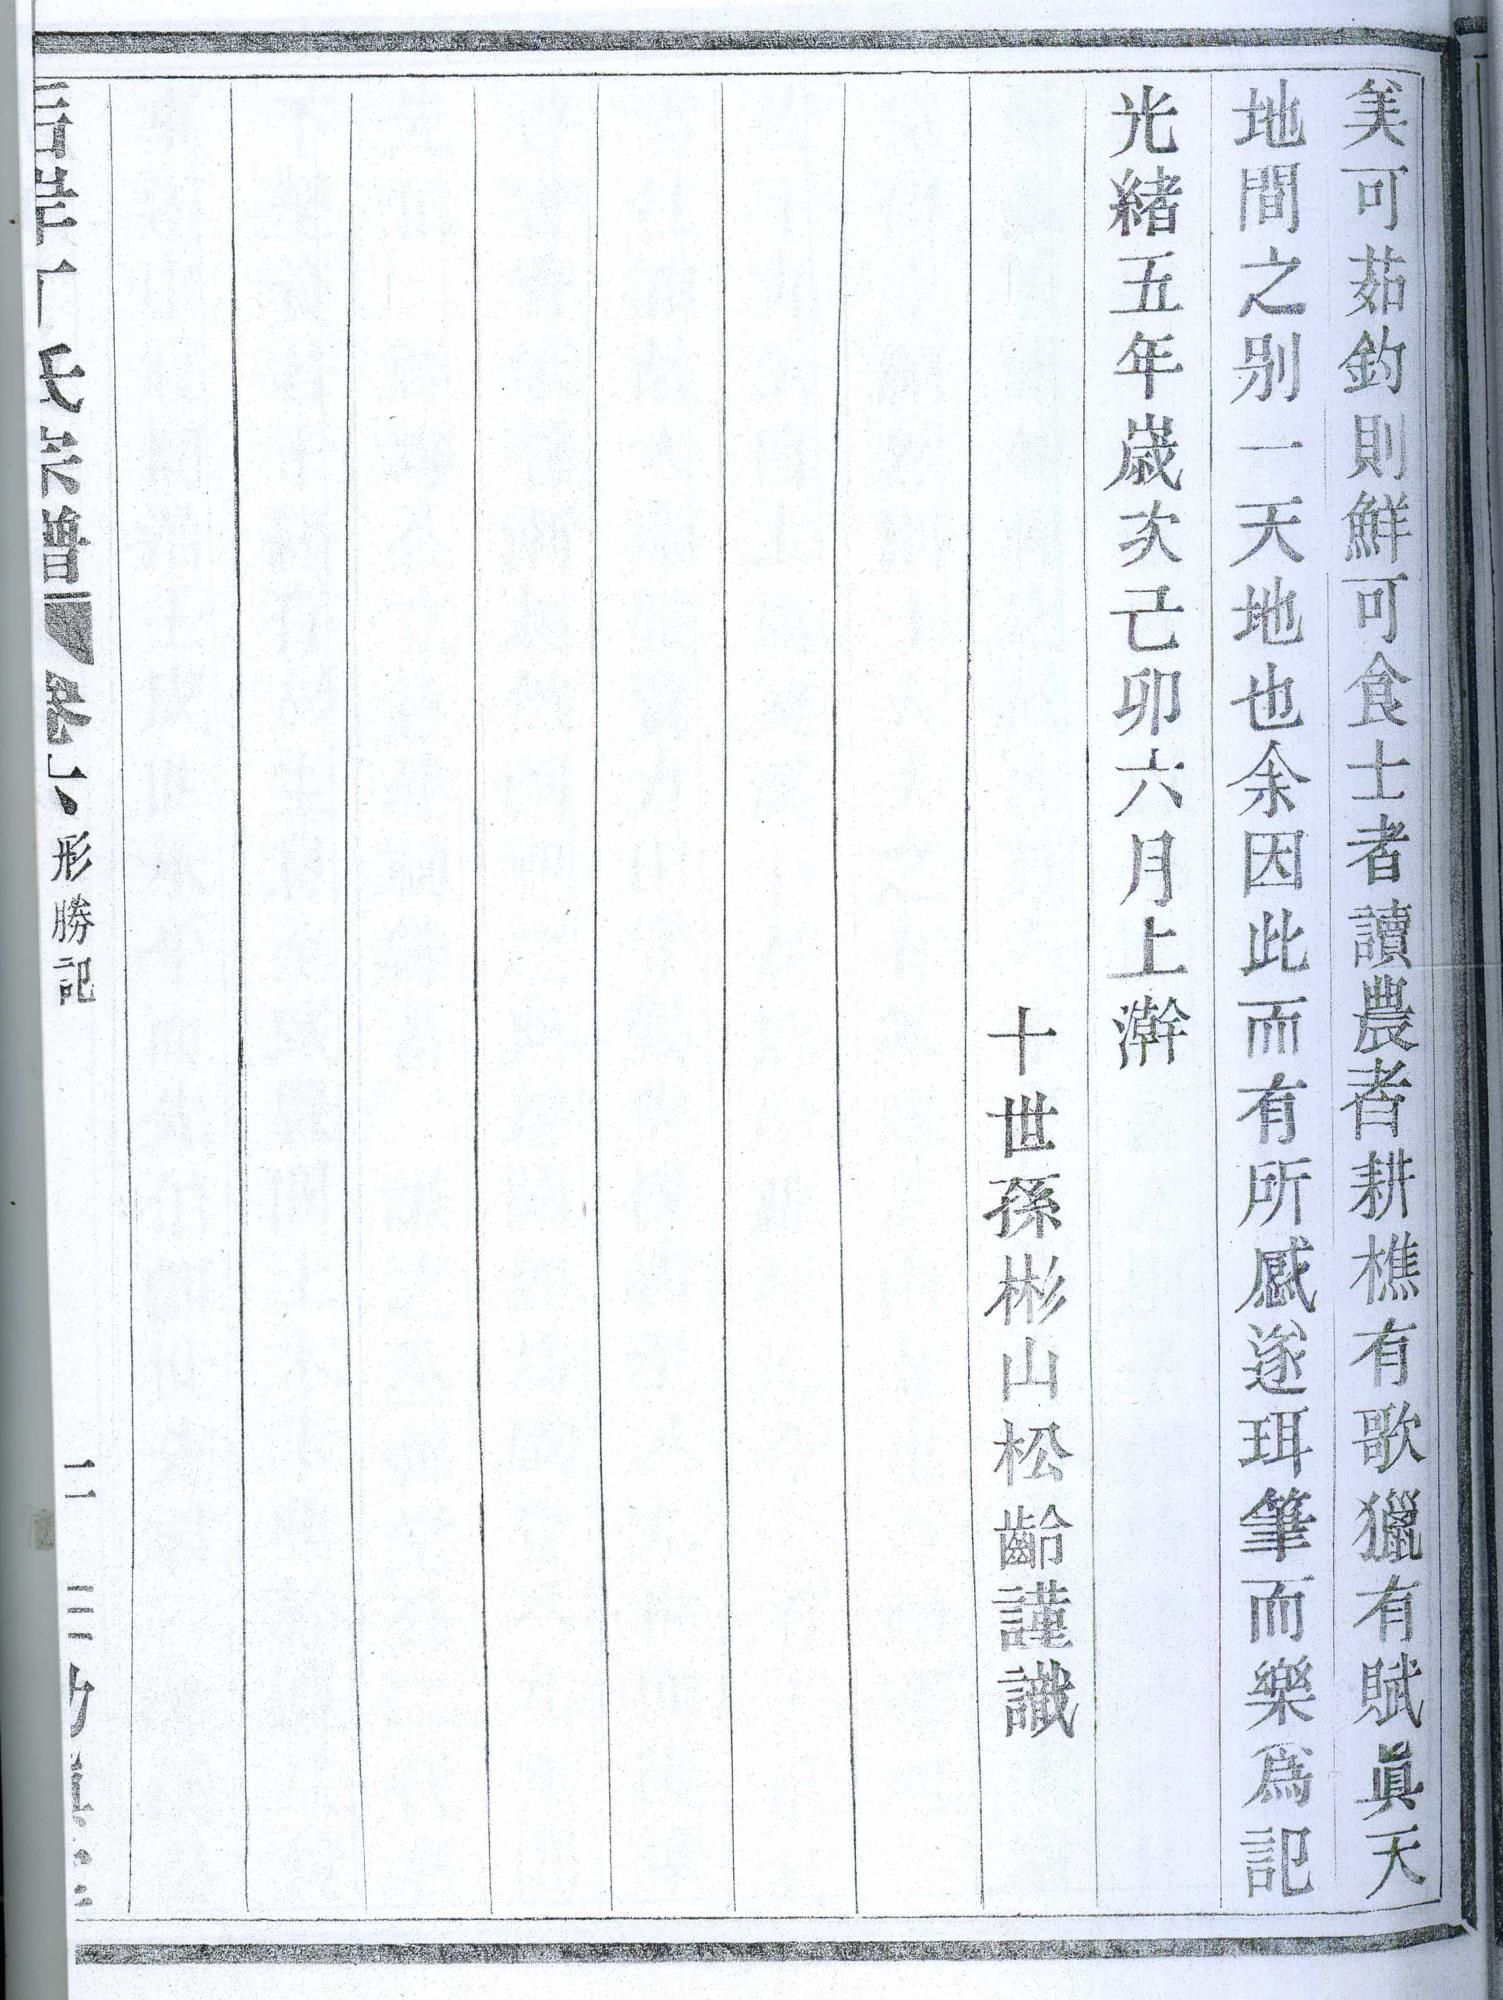 美可茹釣則鮮可食士者讀農者耕樵有歌獵有賦眞天
地間之别一天地也余因此而有所感遂珥筆而樂爲記
光緒五年歲次己卯六月上澣
十世孫彬山松齡謹識
氏宗譜
形勝記
二
三